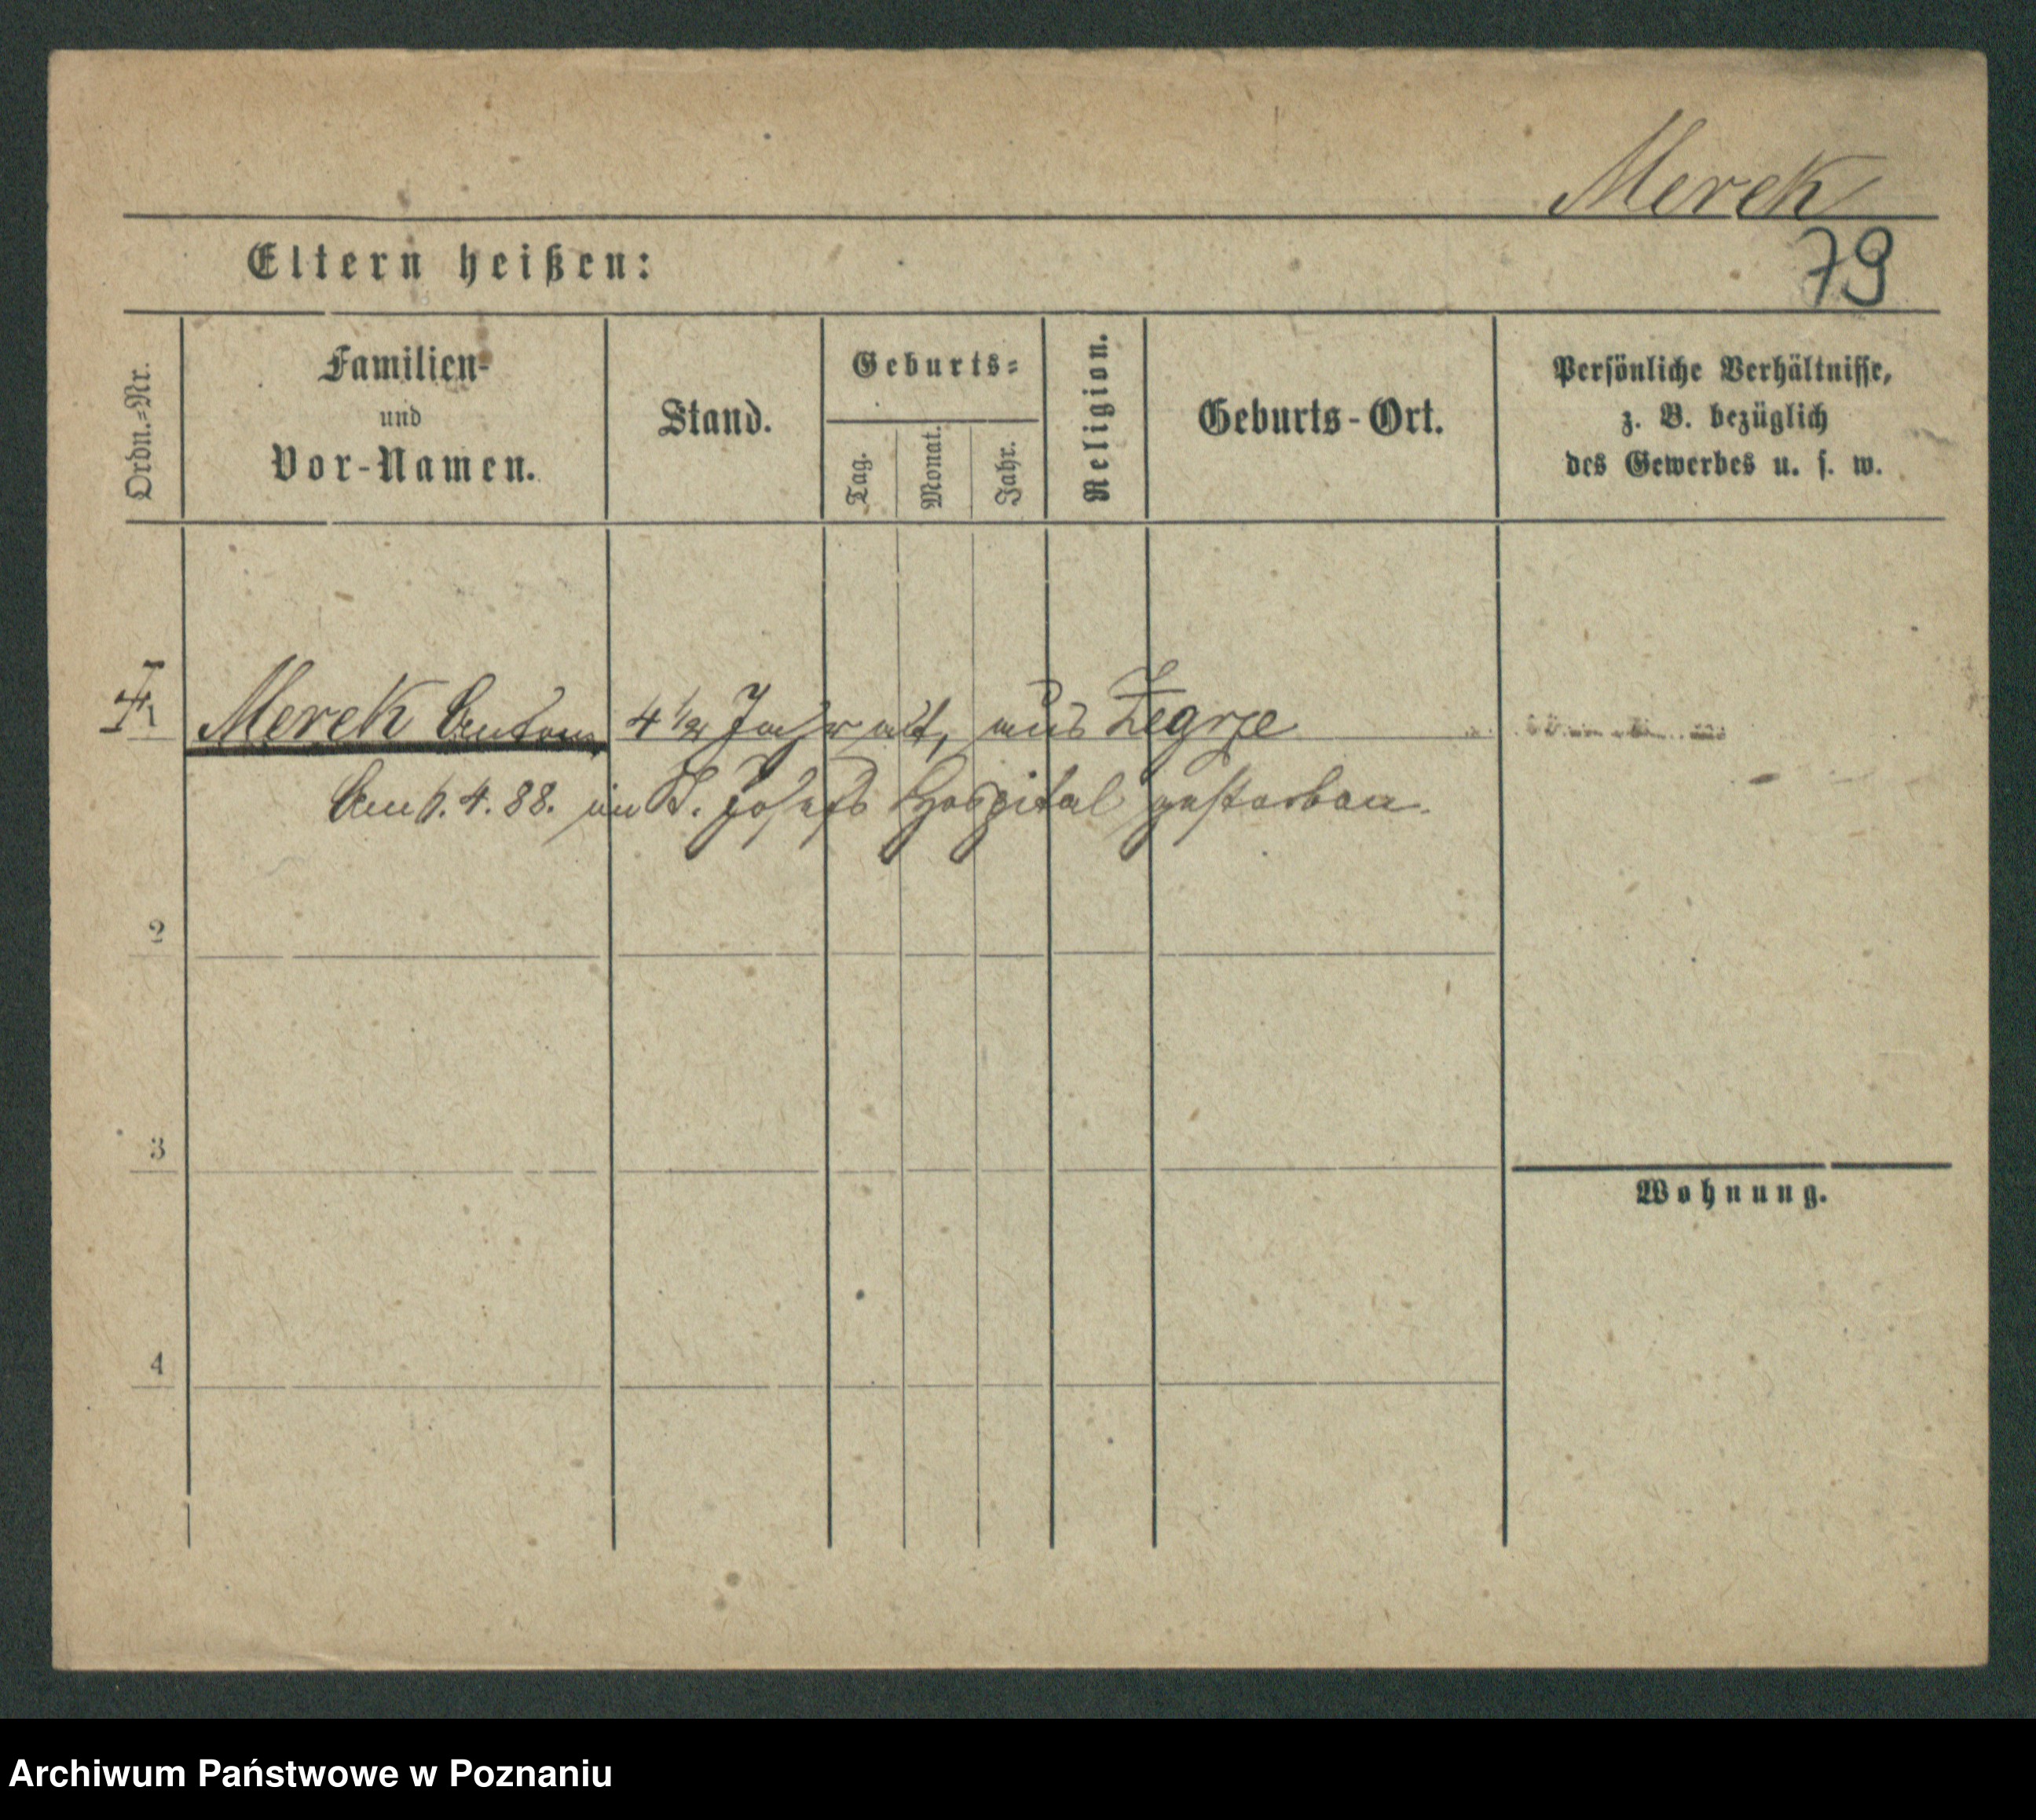 Merek
79
Eltern heißen:
Ordn.=Nr.
Familien-
und
Vor-Namen.
Stand.
Geburts=
Tag.
Monat.
Jahr.
Religion.
Geburts-Ort.
Persönliche Verhältnisse,
z. B. bezüglich
des Gewerbes u. s. w.
1 Merek Anton 4 1/2 Jahr alt, aus Zegrze
Am 6. 4. 88. im S. Josefs Hospital gestorben.
2
3
Wohnung.
4
Archiwum Państwowe w Poznaniu